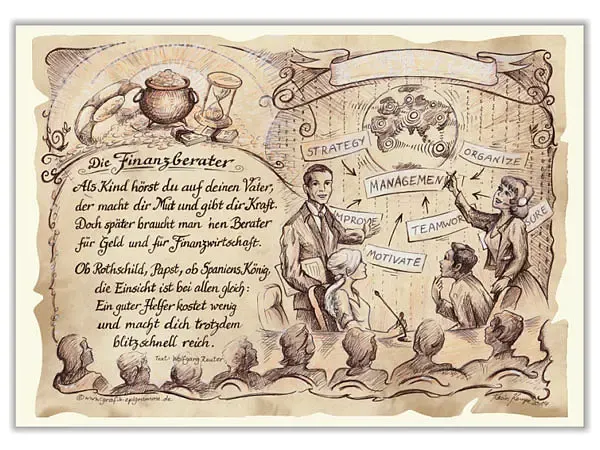 Die Finanzberater
Als Kind hörst du auf deinen Vater,
der macht dir Mut und gibt dir Kraft.
Doch später braucht man hen Berater
für Geld und für Finanzwirtschaft.
Ob Rothschild, Papst, ob Spaniens König,
die Einsicht ist bei allen gleich:
Ein guter Helfer kostet wenig
und macht dich trotzdem
blitzschnell reich.
Text: Wolfgang Reuter
©www.grafik-epigramme.de
STRATEGY
ORGANIZE
MANAGEMEN
IMPROVE
TEAMWOR
MOTIVATE